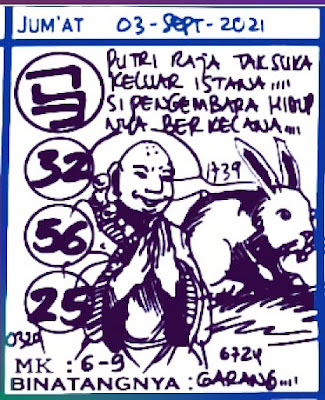 JUM'AT 03-SEPT-2021
PUTRI RAJA TAK SUKA
KELUAR ISTANA....
SI PENGEMBARA HIDUP
NYA BERKECANA....
32
1739
56
25
0329
6724
MK : 6-9
BINATANGNYA : GARANG....